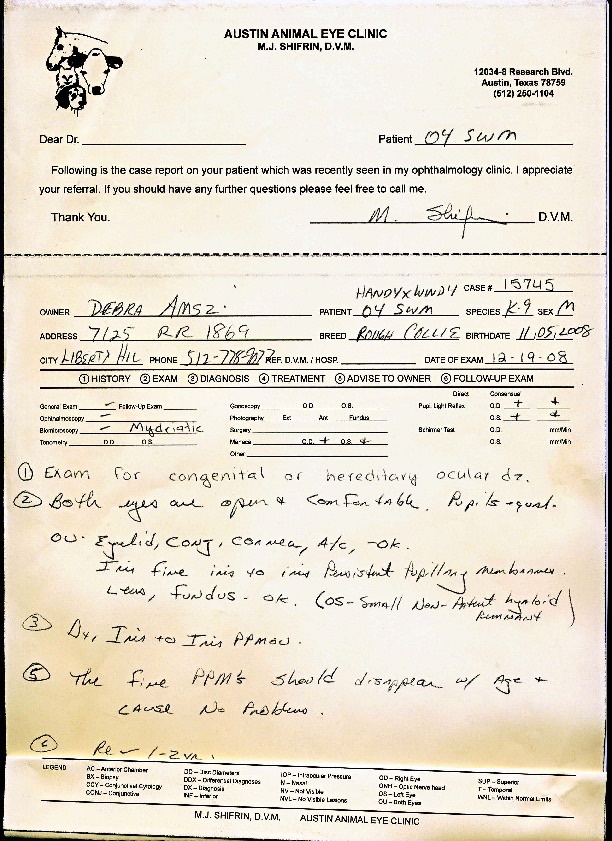 AUSTIN ANIMAL EYE CLINIC
M.J. SHIFRIN, D.V.M.
12034-B Research Blvd.
Austin, Texas 78759
(512) 250-1104
Dear Dr. Patient 04 SWM
Following is the case report on your patient which was recently seen in my ophthalmology clinic. I appreciate
your referral. If you should have any further questions please feel free to call me.
Thank You. M. Shifrin D.V.M.
HANDY x WINDY CASE # 15745
OWNER DEBRA AMSZ. PATIENT 04 SWM SPECIES K-9 SEX M
ADDRESS 7125 RR 1869 BREED ROUGH COLLIE BIRTHDATE 11,05,2008
CITY LIBERTY HIL PHONE 512-778- REF. D.V.M. / HOSP. DATE OF EXAM 12-19-08
① HISTORY ② EXAM ③ DIAGNOSIS ④ TREATMENT ⑤ ADVISE TO OWNER ⑥ FOLLOW-UP EXAM
Direct Consensual
General Exam Follow-Up Exam Gonioscopy O.D. O.S. Pupil. Light Reflex O.D. + +
Ophthalmoscopy Photography Ext Ant Fundus O.S. + +
Biomicroscopy Mydriatic Surgery Schirmer Test O.D. mm/Min
Tonometry O.D. O.S. Menace O.D. + O.S. + O.S. mm/Min
Other
① Exam for congenital or hereditary ocular dz.
② Both eyes are open + comfortable. Pupils - equal.
OU - Eyelid, CONJ, cornea, A/C, -OK.
Iris fine iris to iris Persistent Pupillary membranes.
Lens, fundus - OK. (OS - Small Non-Patent hyaloid
Remnant)
③ Dx, Iris to Iris PPM OU.
⑤ The fine PPM's should disappear w/ Age +
cause No Problems.
⑥ Re ✓ 1-2 yr.
LEGEND
AC – Anterior Chamber
BX – Biopsy
CCY – Conjunctival Cytology
CONJ – Conjunctiva
DD – Disc Diameters
DDX – Differential Diagnoses
DX – Diagnosis
INF – Inferior
IOP – Intraocular Pressure
M – Nasal
NV – Not Visible
NVL – No Visible Lesions
OD – Right Eye
ONH – Optic Nerve head
OS – Left Eye
OU – Both Eyes
SUP – Superior
T – Temporal
WNL – Within Normal Limits
M.J. SHIFRIN, D.V.M. AUSTIN ANIMAL EYE CLINIC